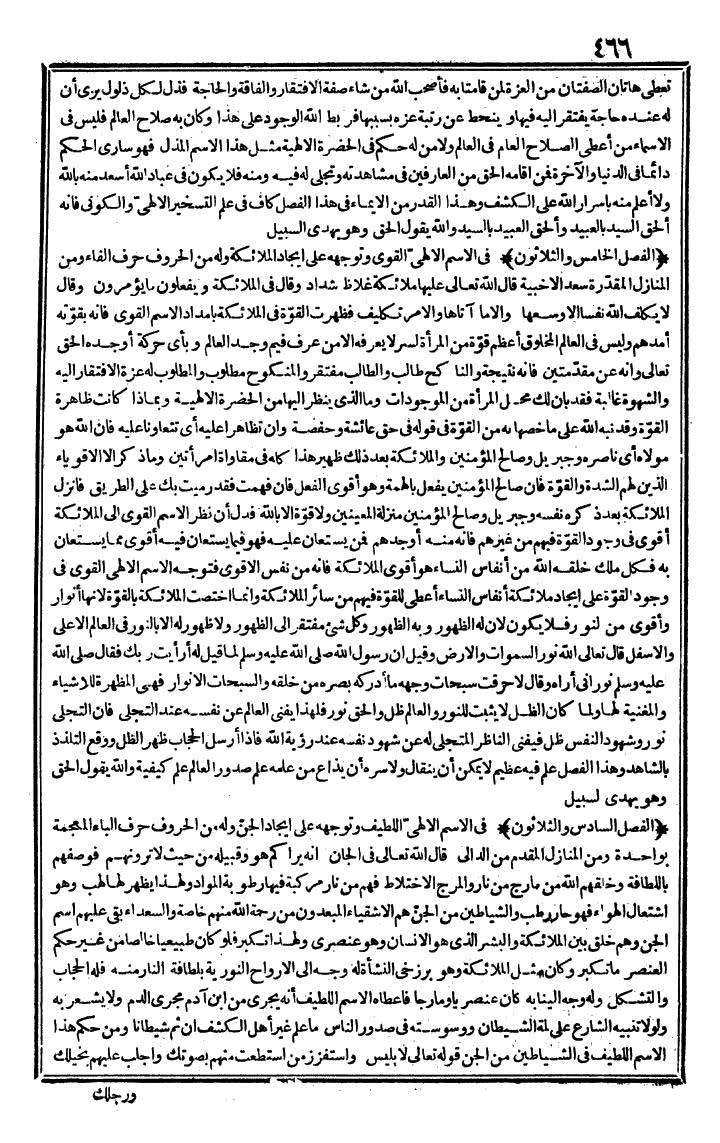 ٤٦٦
تعطى هاتان الصفتان من العزة لمن قامتا به فأصحب الله من شاء صفة الافتقار والفاقة والحاجة فذل لكل ذلول يرى أن
له عنده حاجة يفتقر اليه فيها و ينحط عن رتبة عزه بسببها فربط الله الوجود على هذا وكان به صلاح العالم فليس فى
الاسماء من أعطى الصلاح العام فى العالم ولا من له حكم فى الحضرة الالهية مثل هذا الاسم المذل فهو سارى الحكم
دائما فى الدنيا والآخرة فمن اقامه الحق من العارفين فى مشاهدته وتجلى له فيه ومنه فلا يكون فى عباد الله أسعد منه بالله
ولا أعلم منه باسرار الله على الكشف وهذا القدر من الايماء فى هذا الفصل كاف فى علم التسخير الالهىّ والكونى فانه
ألحق السيد بالعبيد وألحق العبيد بالسيد والله يقول الحق وهو يهدى السبيل
﴿الفصل الخامس والثلاثون﴾ فى الاسم الالهىّ القوى وتوجهه على ايجاد الملائكة وله من الحروف حرف الفاء ومن
المنازل المقدّرة سعد الاخبية قال الله تعالى عليها ملائكة غلاظ شداد وقال فى الملائكة و يفعلون ما يؤمرون وقال
لا يكلف الله نفسا الا وسعها والا ما آتاها والامر تكليف فظهرت القوّة فى الملائكة بامداد الاسم القوى فانه بقوّته
أمدهم وليس فى العالم المخلوق أعظم قوّة من المرأة لسر لا يعرفه الا من عرف فيم وجد العالم و بأى حركة أوجده الحق
تعالى وانه عن مقدّمتين فانه نتيجة والناكح طالب والطالب مفتقر والمنكوح مطلوب والمطلوب له عزة الافتقار اليه
والشهوة غالبة فقد بان لك محل المرأة من الموجودات وما الذى ينظر اليها من الحضرة الالهية و بماذا كانت ظاهرة
القوّة وقد نبه الله على ما خصها به من القوّة فى قوله فى حق عائشة وحفصة وان تظاهرا عليه أى تتعاونا عليه فان الله هو
مولاه أى ناصره وجبريل وصالح المؤمنين والملائكة بعد ذلك ظهير هذا كله فى مقاواة امرأتين وما ذكر الا الاقوياء
الذين لهم الشدة والقوّة فان صالح المؤمنين يفعل بالهمة وهو أقوى الفعل فان فهمت فقد رميت بك على الطريق فانزل
الملائكة بعد ذكره نفسه وجبريل وصالح المؤمنين منزلة المعينين ولا قوّة الا بالله فدل أن نظر الاسم القوى الى الملائكة
أقوى فى وجود القوّة فيهم من غيرهم فانه منه أوجدهم فمن يستعان عليه فهو فيما يستعان فيه أقوى مما يستعان
به فكل ملك خلقه الله من أنفاس النساء هو أقوى الملائكة فانه من نفس الاقوى فتوجه الاسم الالهى القوى فى
وجود القوّة على ايجاد ملائكة أنفاس النساء أعطى للقوّة فيهم من سائر الملائكة وانما اختصت الملائكة بالقوّة لانها أنوار
وأقوى من النور فلا يكون لان له الظهور و به الظهور وكل شئ مفتقر الى الظهور ولا ظهور له الا بالنور فى العالم الاعلى
والاسفل قال تعالى الله نور السموات والارض وقيل ان رسول الله صلى الله عليه وسلم لما قيل له أرأيت ربك فقال صلى الله
عليه وسلم نورانى أراه وقال لاحرقت سبحات وجهه ما أدركه بصره من خلقه والسبحات الانوار فهى المظهرة للاشياء
والمفنية لها ولما كان الظل لا يثبت للنور والعالم ظل والحق نور فلهذا يفنى العالم عن نفسه عند التجلى فان التجلى
نور وشهود النفس ظل فيفنى الناظر المتجلى له عن شهود نفسه عند رؤية الله فاذا أرسل الحجاب ظهر الظل ووقع التلذذ
بالشاهد وهذا الفصل علم فيه عظيم لا يمكن أن ينقال ولا سره أن يذاع من علمه علم صدور العالم علم كيفية والله يقول الحق
وهو يهدى لسبيل
﴿الفصل السادس والثلاثون﴾ فى الاسم الالهىّ اللطيف وتوجهه على ايجاد الجنّ وله من الحروف حرف الباء المعجمة
بواحدة ومن المنازل المقدم من الدالى قال الله تعالى فى الجان انه يراكم هو وقبيله من حيث لا ترونهم فوصفهم
باللطافة وخلقهم الله من مارج من نار والمرج الاختلاط فهم من نار مركبة فيها رطوبة المواد ولهذا يظهر لها لهب وهو
اشتعال الهواء فهو حار رطب والشياطين من الجنّ هم الاشقياء المبعدون من رحمة الله منهم خاصة والسعداء بقى عليهم اسم
الجن وهم خلق بين الملائكة والبشر الذى هو الانسان وهو عنصرى ولهذا تكبر فلو كان طبيعيا خالصا من غير حكم
العنصر ما تكبر وكان مثل الملائكة وهو برزخى النشأة له وجه الى الارواح النورية بلطافة النار منه فله الحجاب
والتشكل وله وجه الينا به كان عنصريا ومارجا فاعطاه الاسم اللطيف أنه يجرى من ابن آدم مجرى الدم ولا يشعر به
ولولا تنبيه الشارع على لمة الشيطان ووسوسته فى صدور الناس ما علم غير أهل الكشف ان ثم شيطانا ومن حكم هذا
الاسم اللطيف فى الشياطين من الجن قوله تعالى لابليس واستفزز من استطعت منهم بصوتك واجلب عليهم بخيلك
ورجلك